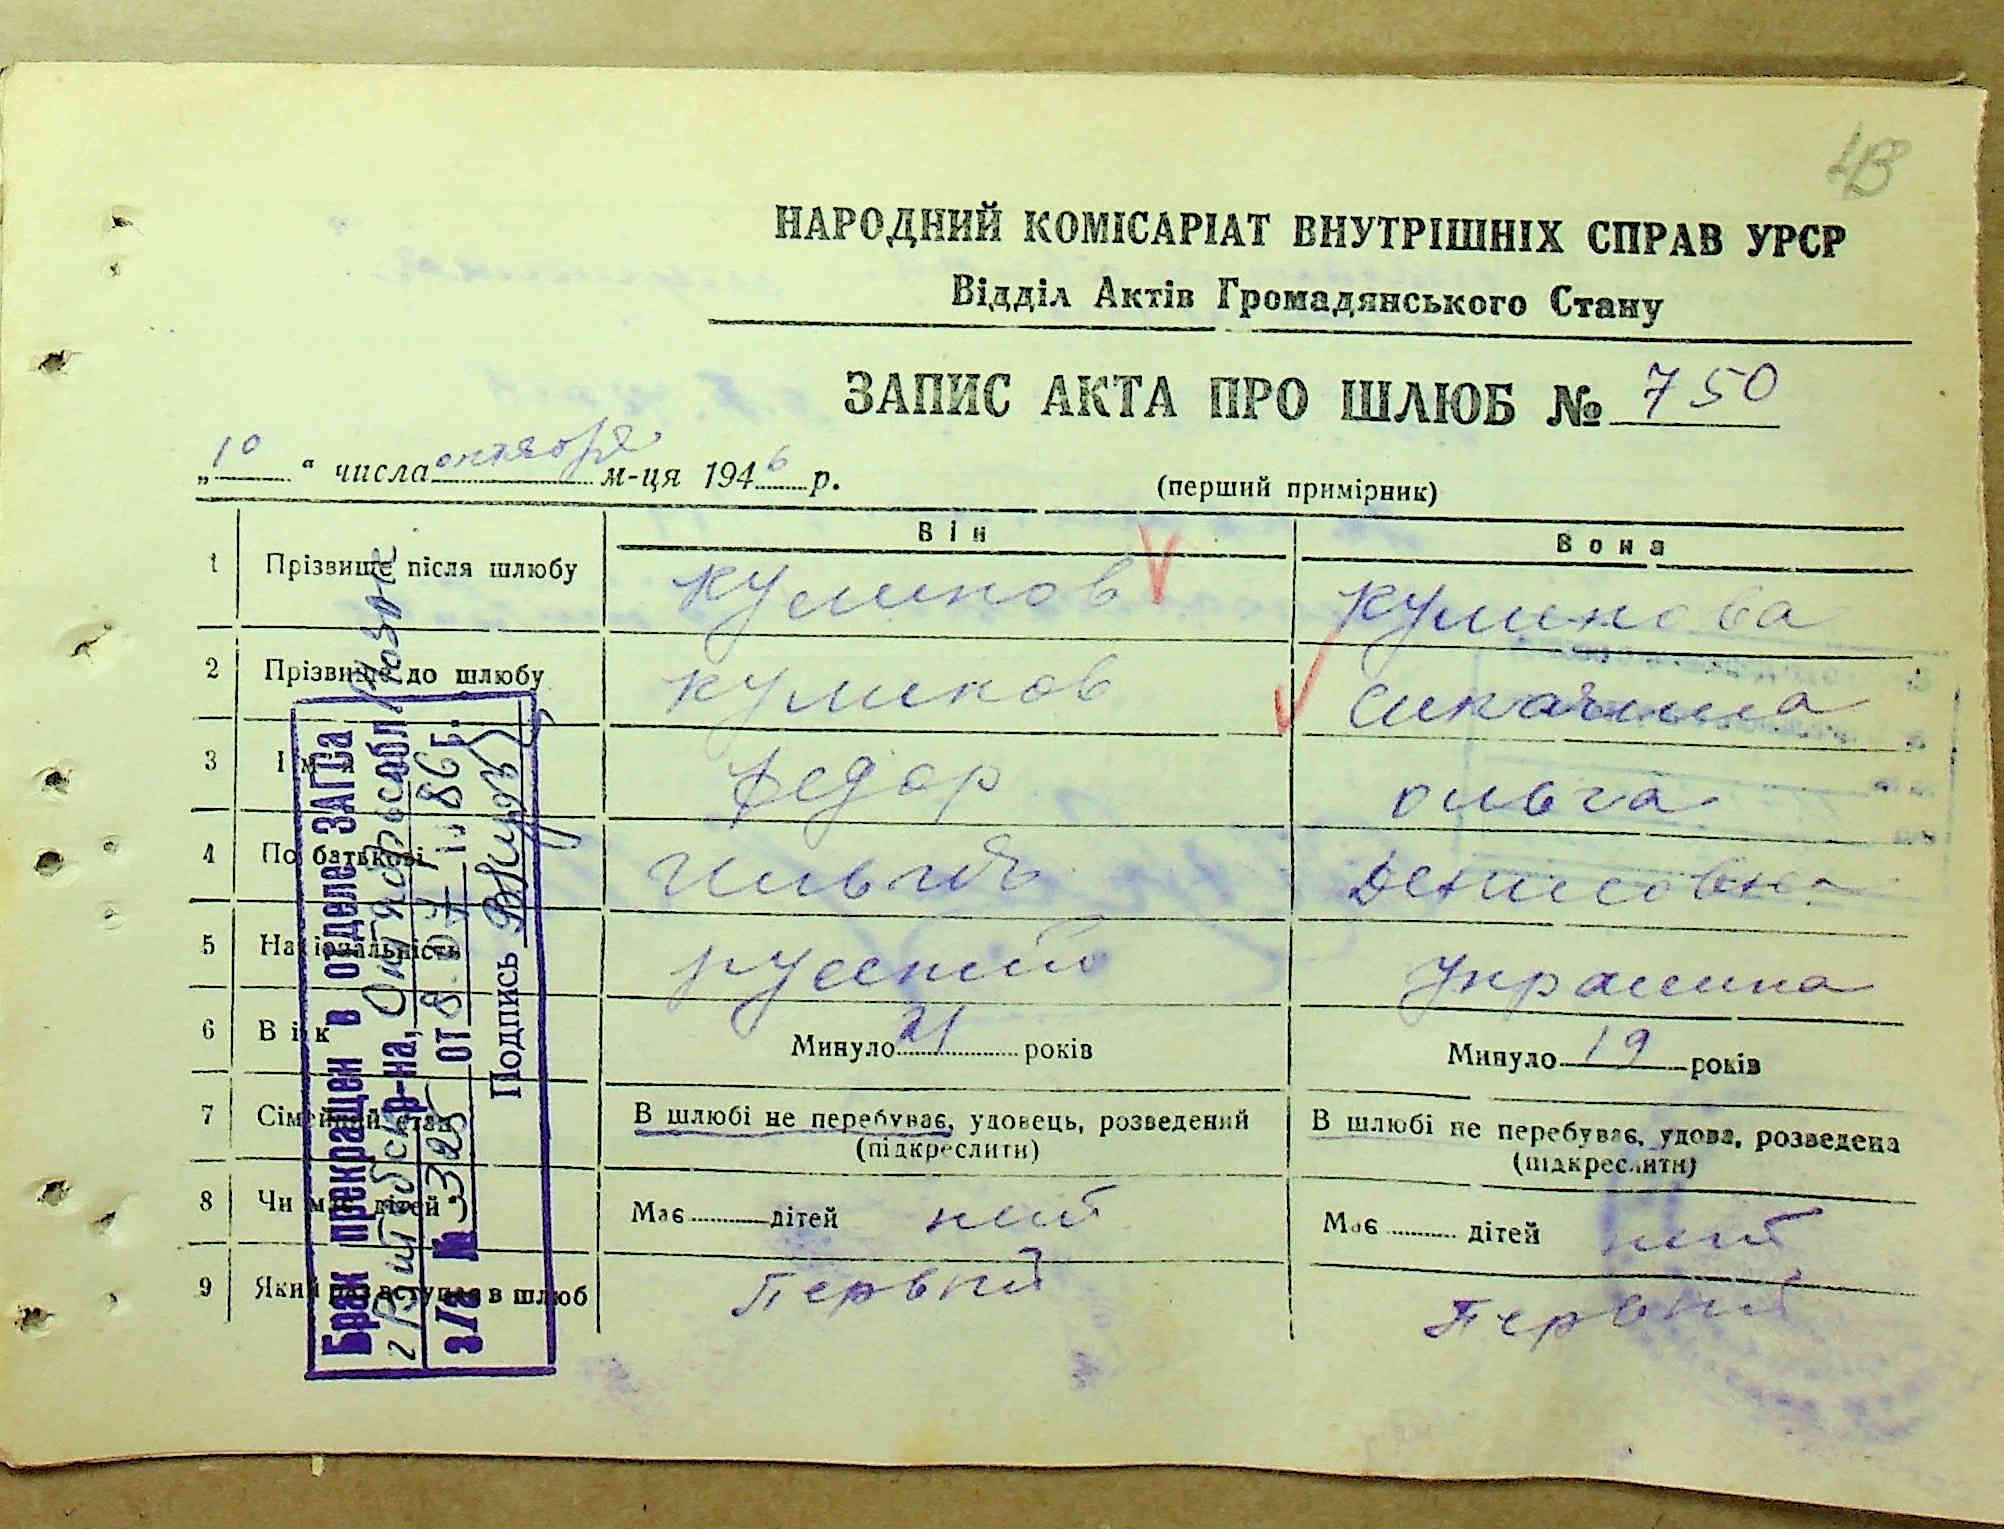 НАРОДНИЙ КОМІСАРІАТ ВНУТРІШНІХ СПРАВ УРСР
Відділ Актів Громадянського Стану
ЗАПИС АКТА ПРО ШЛЮБ № 750
„10“ числа октября м-ця 1946 р.
(перший примірник)
Він Вона
1 Прізвище після шлюбу Куликов Куликова
2 Прізвище до шлюбу Куликов
3 Ім'я Федор Ольга
4 По батькові Ильич Денисовна
5 Національність русский Украинка
6 Вік Минуло 21 років Минуло 19 років
7 Сімейний стан В шлюбі не перебуває, удовець, розведений В шлюбі не перебуває, удова, розведена
(підкреслити) (підкреслити)
8 Чи має дітей Має дітей нет Має дітей нет
9 Який раз вступає в шлюб Первый Первый
Брак прекращен в отделе ЗАГСа
г. Витебск р-на, Октябрьс обл
а/з № 325 от 8.07 1986 г.
Подпись